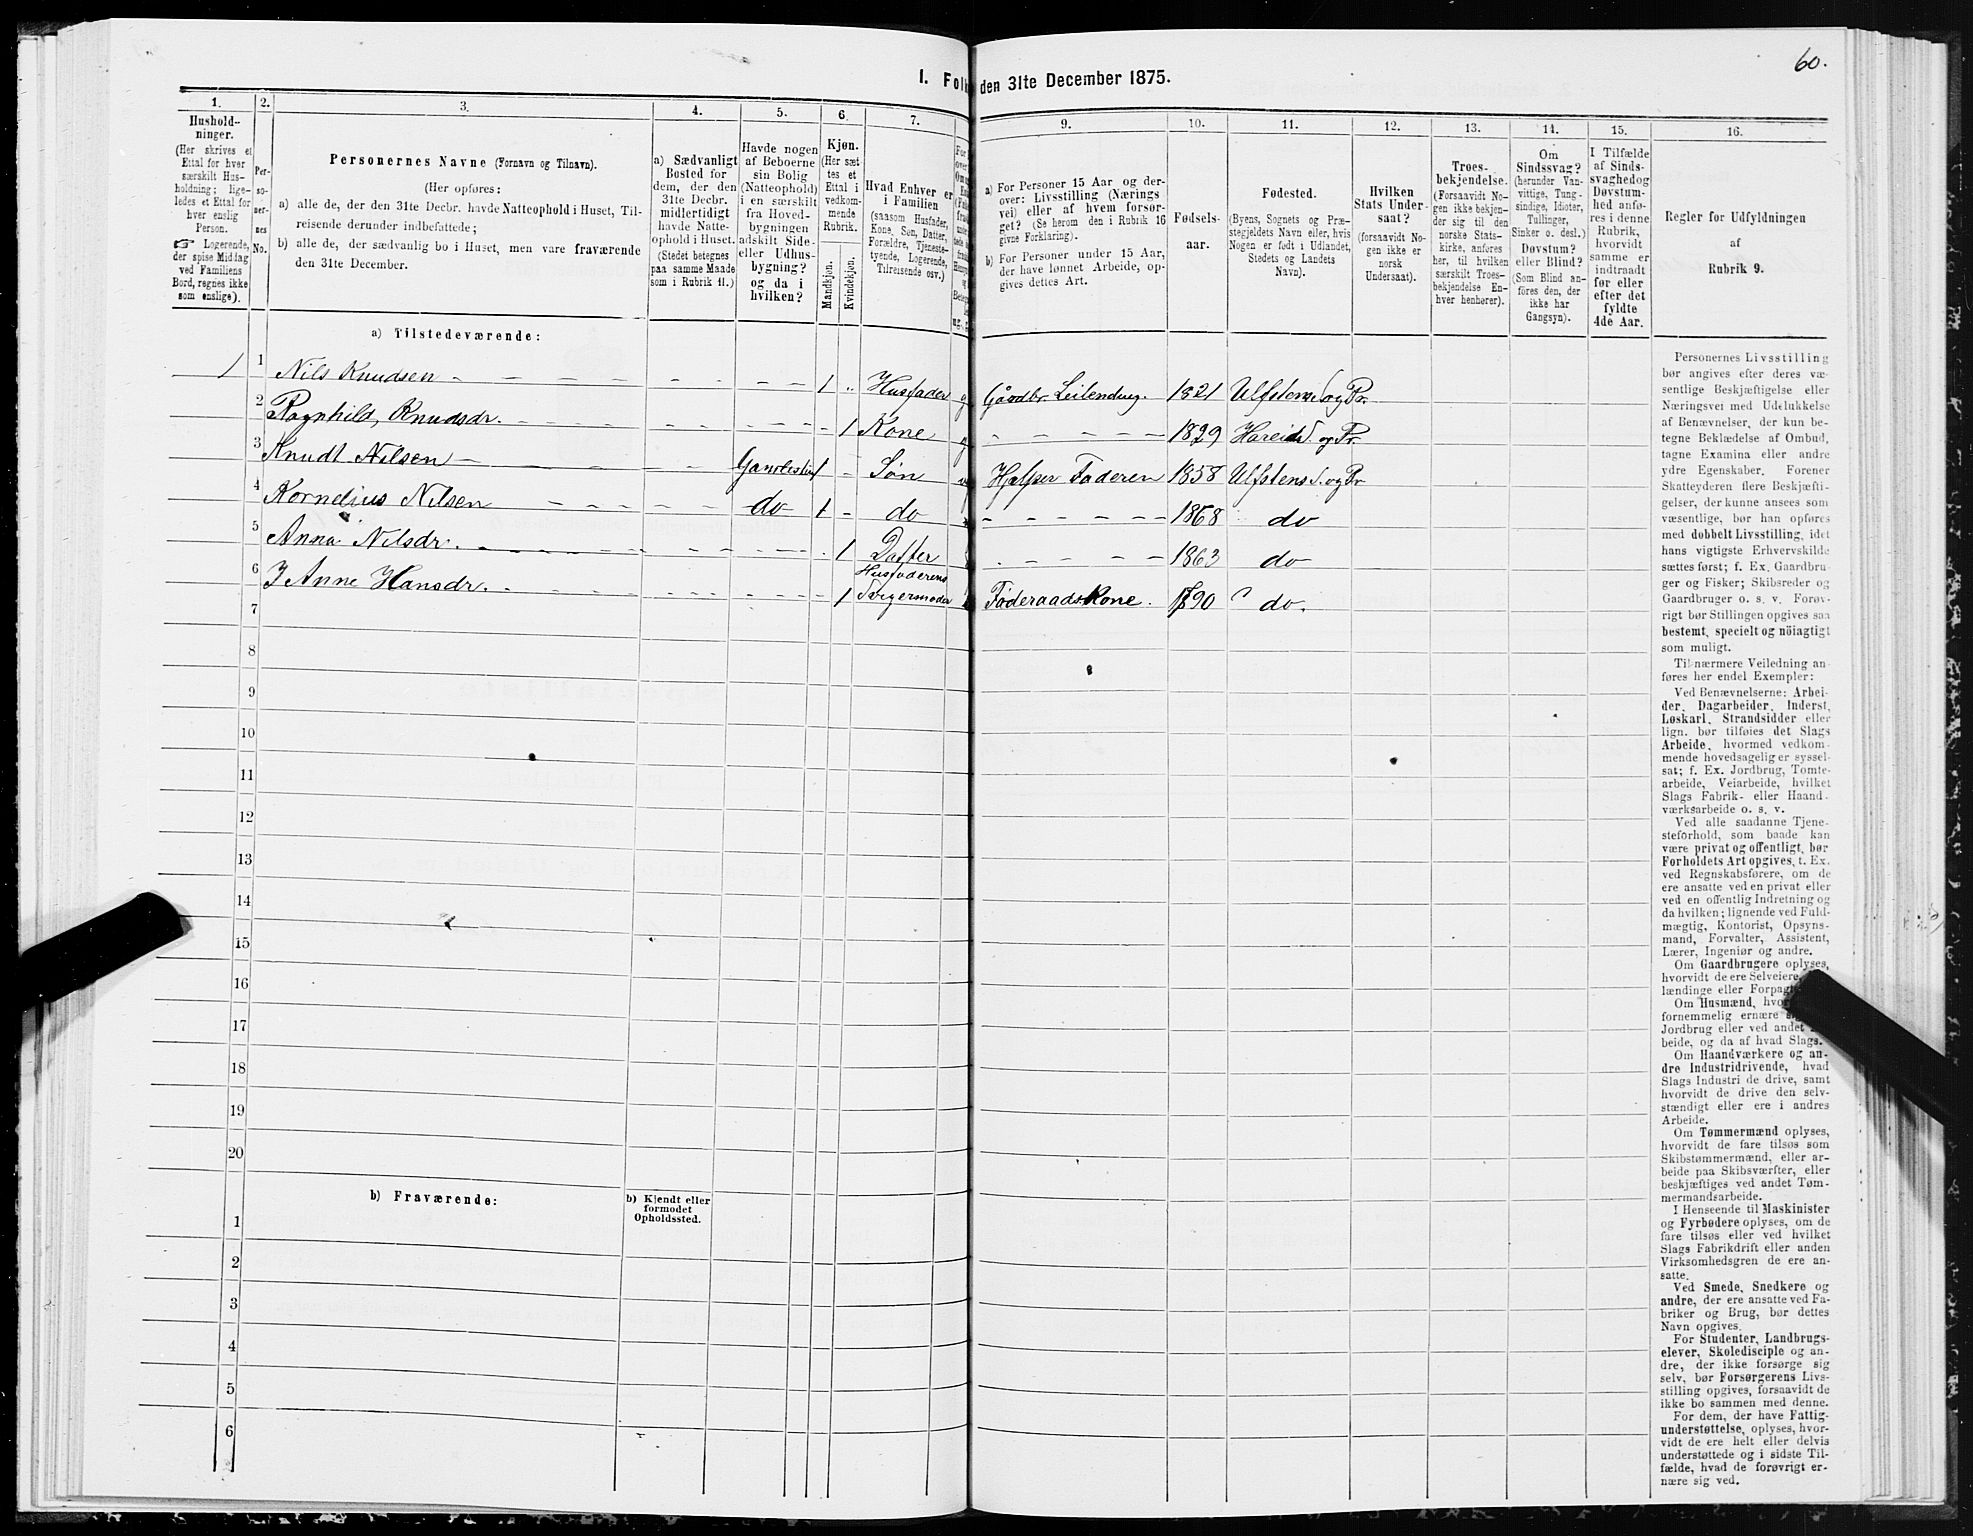 60.
I. Folk
den 31te December 1875.
1.
2.
3.
4.
5.
6.
7.
9.
10.
11.
12.
13.
14.
15.
16.
Hushold-
ninger.
(Her skrives et
Ettal for hver
særskilt Hus-
holdning; lige-
ledes et Ettal for
hver enslig
Person.
☞ Logerende,
der spise Middag
ved Familiens
Bord, regnes ikke
som enslige).
Per-
so-
ner-
nes
No.
Personernes Navne (Fornavn og Tilnavn).
(Her opføres:
a) alle de, der den 31te Decbr. havde Natteophold i Huset, Til-
reisende derunder indbefattede;
b) alle de, der sædvanlig bo i Huset, men vare fraværende
den 31te December.
a) Sædvanligt
Bosted for
dem, der den
31te Decbr.
midlertidigt
havde Natte-
ophold i Huset.
(Stedet betegnes
paa samme Maade
som i Rubrik 11.)
Havde nogen
af Beboerne
sin Bolig
(Natteophold)
i en særskilt
fra Hoved-
bygningen
adskilt Side-
eller Udhus-
bygning?
og da i
hvilken?
Kjøn.
(Her sæt
tes et
Ettal i
vedkom-
mende
Rubrik.
Mandkjøn.
Kvindekjøn.
Hvad Enhver er
i Familien
(saasom Husfader,
Kone, Søn, Datter,
Forældre, Tjeneste-
tyende, Logerende,
Tilreisende osv.)
a) For Personer 15 Aar og der-
over: Livsstilling (Nærings
vei) eller af hvem forsør-
get? (Se herom den i Rubrik 16
givne Forklaring).
b) For Personer under 15 Aar,
der have lønnet Arbeide, op-
gives dettes Art.
Fødsels-
aar.
Fødested.
(Byens, Sognets og Præ-
stegjeldets Navn eller, hvis
Nogen er født i Udlandet,
Stedets og Landets
Navn).
Hvilken
Stats Under-
saat?
(forsaavidt No-
gen ikke er
norsk
Undersaat).
Troes-
bekjendelse.
(Forsaavidt No-
gen ikke bekjen-
der sig til den
norske Stats-
kirke, anføres
her, til hvilken
særskilt Troes-
bekjendelse En-
hver henhører).
Om
Sindssvag?
(herunder Van-
vittige, Tung-
sindige, Idioter,
Tullinger,
Sinker o. desl.)
Døvstum?
eller Blind?
(Som Blind an-
føres den, der
ikke har
Gangsyn).
I Tilfælde
af Sinds-
svaghed og
Døvstum-
hed anfø-
res i denne
Rubrik,
hvorvidt
samme er
indtraadt
før eller
efter det
fyldte
4de Aar.
Regler for Udfyldningen
af
Rubrik 9.
a) Tilstedeværende:
1 1 Nils Knudsen 1 Husfader g Gaardbr. Leilending. 1821 Ulfstens S. og Pr.
2 Ragnhild, Knudsdr. 1 Kone g 1829 Hareid S. og Pr.
3 Knudt Nilsen 1 Søn Hjelper Faderen 1858 Ulfstens S. og Pr
4 Kornelius Nilsen do 1 do 1868 do
5 Anna Nilsdr. 1 Datter 1863 do
6 Anne Hansdr. 1 Husfaderens Svigermoder Føderaadskone. 1790 ? do.
7
8
9
10
11
12
13
14
15
16
17
18
19
20
b) Fraværende:
b) Kjendt eller
formodet
Opholdssted.
1
2
3
4
5
6
Personernes Livsstilling
bør angives efter deres væ-
sentlige Beskjæftigelse eller
Næringsvei med Udelukkelse
af Benævnelser, der kun be-
tegne Beklædelse af Ombud,
tagne Examina eller andre
ydre Egenskaber. Forener
Skatteyderen flere Beskjæfti-
gelser, der kunne ansees som
væsentlige, bør han opføres
med dobbelt Livsstilling, idet
hans vigtigste Erhvervskilde
sættes først; f. Ex. Gaardbru-
ger og Fisker; Skibsreder og
Gaardbruger o. s. v. Forøv-
rigt bør Stillingen opgives saa
bestemt, specielt og nöiagtigt
som muligt.
Til nærmere Veiledning an-
føres her endel Exempler:
Ved Benævnelserne: Arbei-
der, Dagarbeider, Inderst,
Løskarl, Strandsidder eller
lign. bør tilføies det Slags
Arbeide, hvormed vedkom-
mende hovedsagelig er syssel-
sat; f. Ex. Jordbrug, Tomte-
arbeide, Veiarbeide, hvilket
Slags Fabrik- eller Haand-
værksarbeide o. s. v.
Ved alle saadanne Tjene-
steforhold, som baade kan
være privat og offentligt, bør
Forholdets Art opgives, t. Ex.
ved Regnskabsførere, om de
ere ansatte ved en privat eller
ved en offentlig Indretning og
da hvilken; lignende ved Fuld-
mægtig, Kontorist, Opsyns-
mand, Forvalter, Assistent,
Lærer, Ingeniør og andre.
Om Gaardbrugere oplyses,
hvorvidt de ere Selveiere,
lændinge eller Forpag
Om Husmænd, hvor
fornemmelig ernære
Jordbrug eller ved andet
beide, og da af hvad Slags.
Om Haandværkere og an-
dre Industridrivende, hvad
Slags Industri de drive, samt
hvorvidt de drive den selv-
stændigt eller ere i andres
Arbeide.
Om Tømmermænd oplyses,
hvorvidt de fare tilsøs som
Skibstømmermænd, eller ar-
beide paa Skibsværfter, eller
beskjæftiges ved andet Tøm-
mermandsarbeide.
I Henseende til Maskinister
og Fyrbødere oplyses, om de
fare tilsøs eller ved hvilket
Slags Fabrikdrift eller anden
Virksomhedsgren de ere an-
satte.
Ved Smede, Snedkere og
andre, der ere ansatte ved Fa-
briker og Brug, bør dettes
Navn opgives.
For Studenter, Landbrugs-
elever, Skoledisciple og an-
dre, der ikke forsørge sig
selv, bør Forsørgerens Livs-
stilling opgives, forsaavidt de
ikke bo sammen med denne.
For dem, der have Fattig-
understøttelse, oplyses, hvor-
vidt de ere helt eller delvis
understøttede og i sidste Til-
fælde, hvad de forøvrigt er-
nære sig ved.